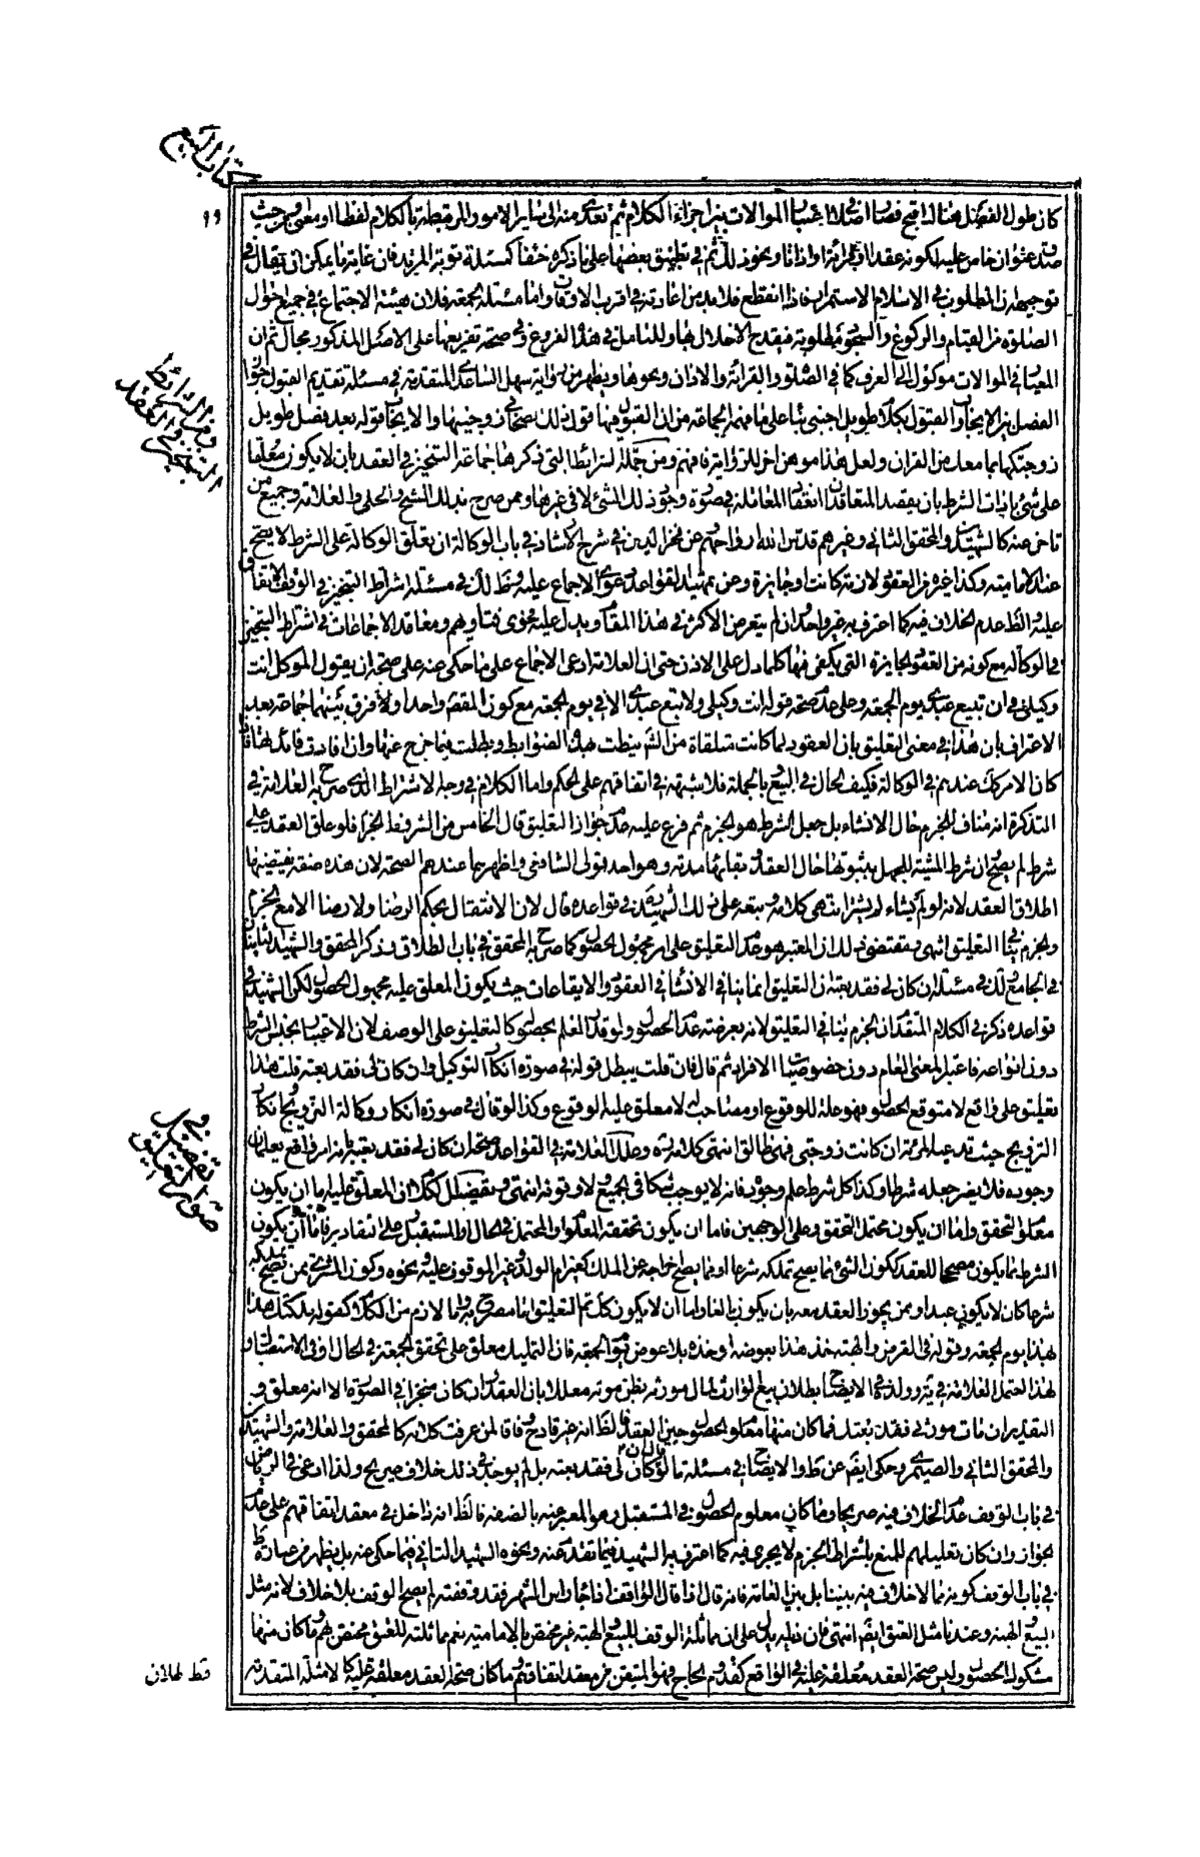 كتاب البيع
٩٩
كان طول الفصل هناك اقبح فصار اصلا فى اعتبار الموالات بين اجزاء الكلام ثم تعدى منه الى ساير الامور المرتبطة بالكلام لفظا او معنى او من حيث
صدق عنوان خاص عليه لكونه عقدا او قرائة او اذانا ونحو ذلك ثم فى تطبيق بعضها على ما ذكره خفاء كمسئلة توبة المرتد فان غاية ما يمكن ان يقال فى
توجيهه ان المطلوب فى الاسلام الاستمرار فاذا انقطع فلا بد من اعادته فى اقرب الاوقات واما مسئلة الجمعة فلان هيئة الاجتماع فى جميع احوال
الصلوة من القيام والركوع والسجود مطلوبة فيقدح الاخلال بها وللتامل فى هذه الفروع وفى صحة تفريعها على الاصل المذكور مجال ثم ان
المعيار فى الموالات موكول الى العرف كما فى الصلوة والقرائة والاذان ونحوها ويظهر من رواية سهل الساعدى المتقدمة فى مسئلة تقديم القبول جواز
الفصل بين الايجاب والقبول بكلام طويل اجنبى بناء على ما فهمه الجماعة من ان القبول فيها قول ذلك الصحابى زوجنيها والايجاب قوله بعد فصل طويل
زوجتكها بما معك من القران ولعل هذا موهن اخر للرواية فافهم ومن جملة الشرائط التى ذكرها جماعة التنجيز فى العقد بان لا يكون معلقا
على شئ باداة الشرط بان يقصد المتعاقدان انعقاد المعاملة فى صورة وجود ذلك الشئ لا فى غيرها وممن صرح بذلك الشيخ والحلى والعلامة وجميع من
تاخر عنه كالشهيدين والمحقق الثانى وغيرهم قدس الله ارواحهم وعن فخر الدين فى شرح الارشاد فى باب الوكالة ان تعليق الوكالة على الشرط لا يصح
عند الامامية وكذا غيره من العقود لازمة كانت او جايزة وعن تمهيد القواعد دعوى الاجماع عليه وظ لك فى مسئلة اشتراط التنجيز فى الوقف الاتفاق
عليه والظ عدم الخلاف فيه كما اعترف به غير واحد وان لم يتعرض الاكثر فى هذا المقام ويدل عليه فحوى فتاويهم ومعاقد الاجماعات فى اشتراط التنجيز
فى الوكالة مع كونه من العقود الجايزة التى يكفى فيها كلما دل على الاذن حتى ان العلامة ادعى الاجماع على ما حكى عنه على صحة ان يقول الموكل انت
وكيلى فى ان تبيع عبدى يوم الجمعة وعلى عدم صحة قوله انت وكيلى ولا تبع عبدى الا فى يوم الجمعة مع كون المقصود واحدا وفرق بينهما جماعة بعد
الاعتراف بان هذا فى معنى التعليق بان العقود لما كانت متلقاة من الشرع نيطت بهذه الضوابط وبطلت فيما خرج عنها وان افادت فائدتها فاذا
كان الامر كك عندهم فى الوكالة فكيف الحال فى البيع وبالجملة فلا شبهة فى اتفاقهم على الحكم واما الكلام فى وجه الاشتراط فالذى صرح به العلامة فى
التذكرة انه مناف للجزم حال الانشاء بل جعل الشرط هو الجزم ثم فرع عليه عدم جواز التعليق قال الخامس من الشروط الجزم فلو علق العقد على
شرط لم يصح وان شرط المشية للجهل بثبوتها حال العقد وبقائها مدته وهو احد قولى الشافعى واظهرهما عندهم الصحة لان هذه صفة يقتضيها
اطلاق العقد لانه لو لم يشاء لم يشتر انتهى كلامه وتبعه على ذلك الشهيد ره فى قواعده قال لان الانتقال بحكم الرضا ولا رضا الا مع الجزم
والجزم ينافى التعليق انتهى ومقتضى ذلك ان المعتبر هو عدم التعليق على امر مجهول الحصول كما صرح به المحقق فى باب الطلاق وذكر المحقق والشهيد الثانيان
فى الجامع ولك فى مسئلة ان كان لى فقد بعته ان التعليق انما ينافى الانشاء فى العقود والايقاعات حيث يكون المعلق عليه مجهول الحصول لكن الشهيد فى
قواعده ذكر فى الكلام المتقدم ان الجزم ينافى التعليق لانه بعرضة عدم الحصول ولو قدر العلم بحصوله كالتعليق على الوصف لان الاعتبار بجنس الشرط
دون انواعه فاعتبر المعنى العام دون خصوصيات الافراد ثم قال فان قلت يبطل قوله فى صورة انكار التوكيل ان كان لى فقد بعته قلت هذا
تعليق على واقع لا متوقع الحصول فهو علة للوقوع او مصاحب له لا معلق عليه الوقوع وكذا لو قال فى صورة انكار وكالة التزويج وانكار
التزويج حيث تدعيه المرئة ان كانت زوجتى فهى طالق انتهى كلامه ره وعلل العلامة فى القواعد صحة ان كان لى فقد بعته بانه امر واقع يعلمان
وجوده فلا يضر جعله شرطا وكذا كل شرط علم وجوده فانه لا يوجب شكا فى البيع ولا وقوفه انتهى وتفصيل الكلام ان المعلق عليه اما ان يكون
معلوم التحقق واما ان يكون محتمل التحقق وعلى الوجهين فاما ان يكون تحققه المعلوم او المحتمل فى الحال او المستقبل وعلى التقادير فاما ان يكون
الشرط مما يكون مصححا للعقد ككون الشئ مما يصح تملكه شرعا او مما يصح اخراجه عن الملك كغير ام الولد وغير الموقوف عليه ونحوه وكون المشترى ممن يصح تملكه
شرعا كان لا يكون عبدا وممن يجوز العقد معه بان يكون بالغا واما ان لا يكون كك ثم التعليق اما مصرح به واما لازم من الكلام كقوله ملكتك هذا
بهذا يوم الجمعة وقوله فى القرض والهبة خذ هذا بعوضه او خذه بلا عوض يوم الجمعة فان التمليك معلق على تحقق الجمعة فى الحال او فى الاستقبال و
لهذا احتمل العلامة فى ية وولده فى الايضاح بطلان بيع الوارث لمال مورثه بظن موته معللا بان العقد وان كان منجزا فى الصورة الا انه معلق و
التقدير ان مات مورثى فقد بعتك فما كان منها معلوم الحصول حين العقد فالظ انه غير قادح وفاقا لمن عرفت كلامه كالمحقق والعلامة والشهيدين
والمحقق الثانى والصيمرى وحكى ايضا عن ط والايضاح فى مسئلة ما لو قال ان كان لى فقد بعته بل لم يوجد فى ذلك خلاف صريح ولذا ادعى فى الرياض
فى باب الوقف عدم الخلاف فيه صريحا وما كان معلوم الحصول فى المستقبل وهو المعبر عنه بالصفة فالظ انه داخل فى معقد اتفاقهم على عدم
الجواز وان كان تعليلهم للمنع باشتراط الجزم لا يجرى فيه كما اعترف به الشهيد فيما تقدم عنه ونحوه الشهيد الثانى فيما حكى عنه بل يظهر من عبارة ط
فى باب الوقف كونه مما لا خلاف فيه بيننا بل بين العامة فانه قال اذا قال الواقف اذا جاء راس الشهر فقد وقفته لم يصح الوقف بلا خلاف لانه مثل
البيع والهبة وعندنا مثل العتق ايضا انتهى فان ذيله يدل على ان مماثلة الوقف للبيع والهبة غير مختص بالامامية نعم مماثلته للعتق مختص بهم وما كان منها
مشكوك الحصول وليس صحة العقد معلقة عليه فى الواقع كقدوم الحاج فهو المتيقن من معقد اتفاقهم وما كان صحة العقد معلقة عليه كالامثلة المتقدمة
ومن الشرائط
التنجيز فى العقد
فى تفصيل
صور التعليق